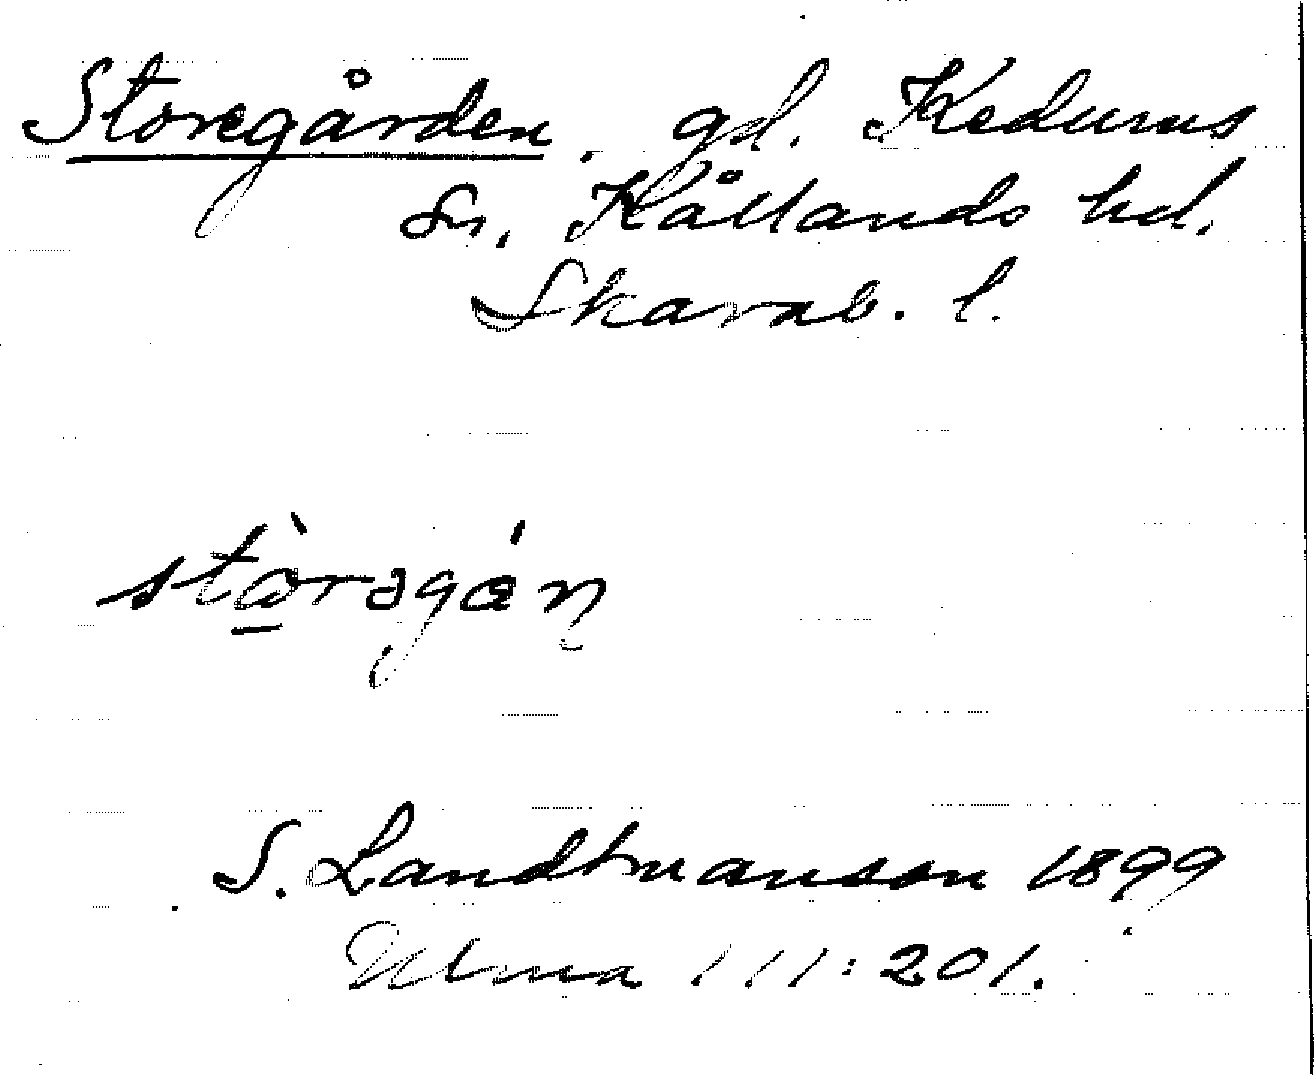 Storegården, gd. Kedums
sn, Kållands hd.
Skarab. l.
stò̱rəgáɳ
S. Landtmanson 1899
Ulma 111:201.